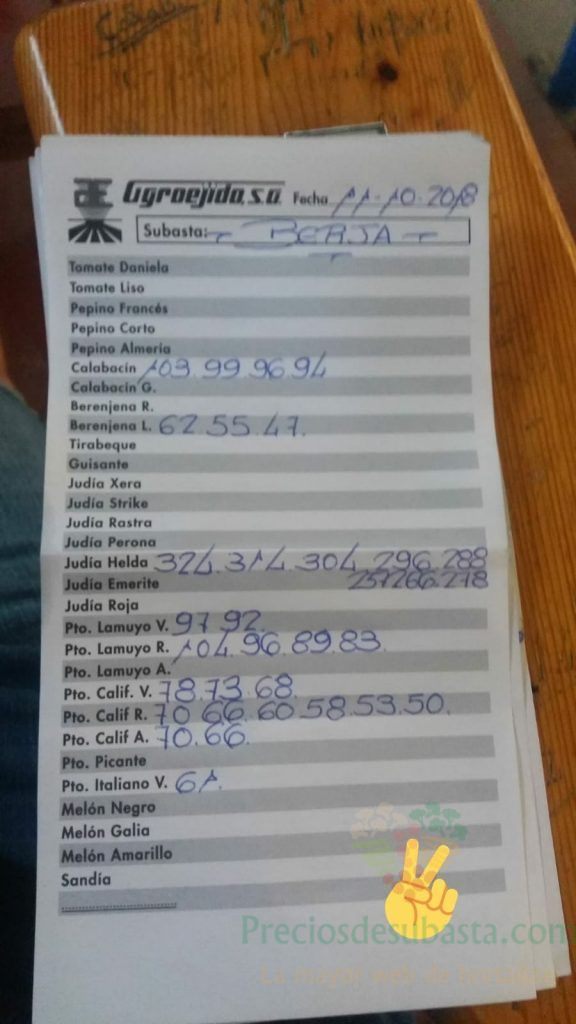 Agroejido, s.a. Fecha 11-10-2018
Subasta: BERJA
Tomate Daniela
Tomate Liso
Pepino Francés
Pepino Corto
Pepino Almeria
Calabacín 103.99.96.94
Calabacín G.
Berenjena R.
Berenjena L. 62.55.47.
Tirabeque
Guisante
Judía Xera
Judía Strike
Judía Rastra
Judía Perona
Judía Helda 324.314.304.296.288
Judía Emerite 278
Judía Roja
Pto. Lamuyo V. 97.92.
Pto. Lamuyo R. 104.96.89.83.
Pto. Lamuyo A.
Pto. Calif. V. 78.73.68.
Pto. Calif R. 70.66.60.58.53.50.
Pto. Calif A. 70.66.
Pto. Picante
Pto. Italiano V. 61.
Melón Negro
Melón Galia
Melón Amarillo
Sandía
Preciosdesubasta.com
La mayor web de